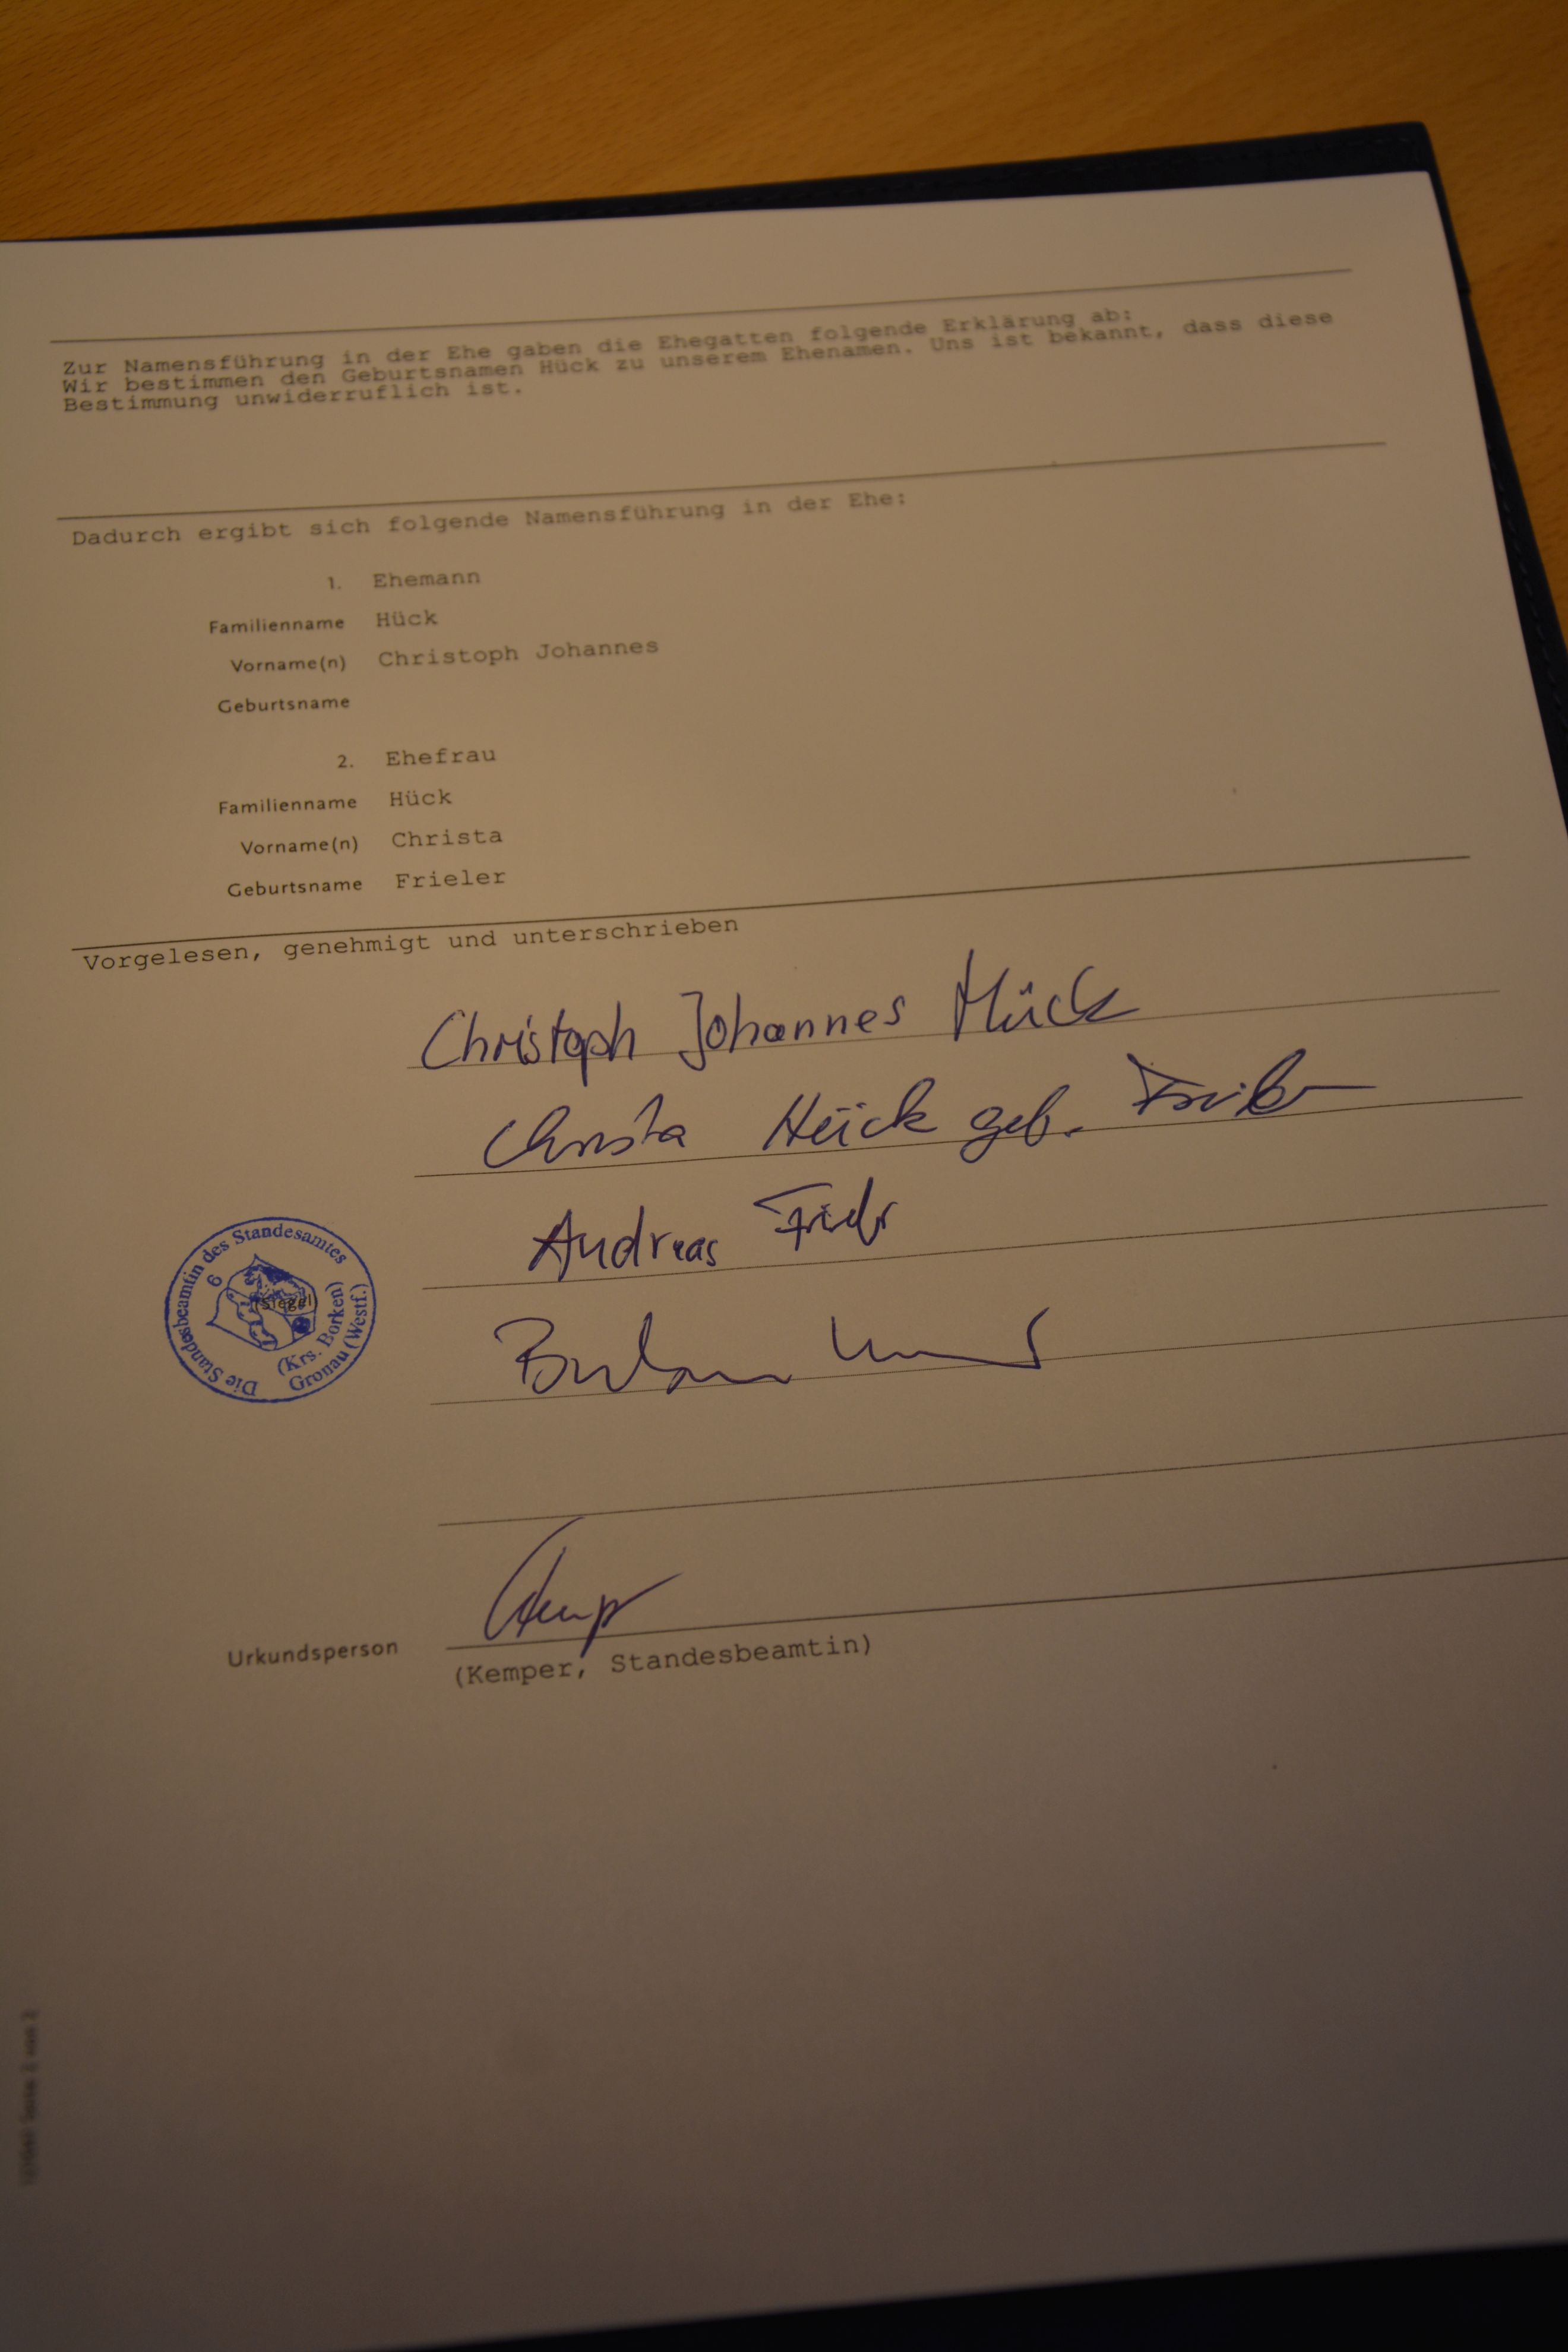 Zur Namensführung in der Ehe gaben die Ehegatten folgende Erklärung ab:
Wir bestimmen den Geburtsnamen Hück zu unserem Ehenamen. Uns ist bekannt, dass diese
Bestimmung unwiderruflich ist.
Dadurch ergibt sich folgende Namensführung in der Ehe:
1. Ehemann
Familienname Hück
Vorname(n) Christoph Johannes
Geburtsname
2. Ehefrau
Familienname Hück
Vorname(n) Christa
Geburtsname Frieler
Vorgelesen, genehmigt und unterschrieben
Christoph Johannes Hück
Christa Hück geb. Frieler
Andreas
Die Standesbeamtin des Standesamtes
6
(Siegel)
(Krs. Borken)
Gronau (Westf.)
Urkundsperson
(Kemper, Standesbeamtin)